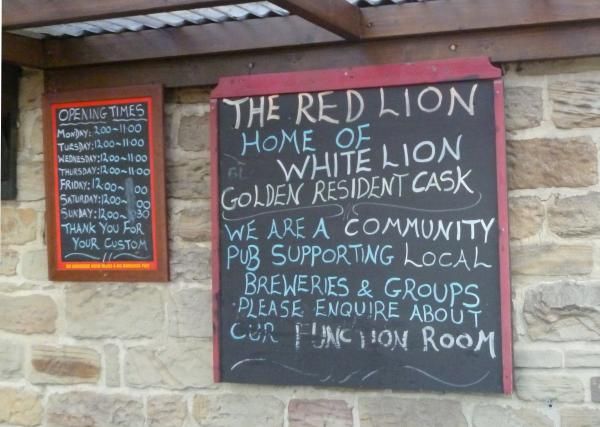 OPENING TIMES
MONDAY: 2:00~11:00
TUESDAY: 12:00~11:00
WEDNESDAY: 12:00~11:00
THURSDAY: 12:00~11:00
FRIDAY: 12:00~
SATURDAY: 12:00~
SUNDAY: 12:00~
THANK YOU FOR
YOUR CUSTOM
THE RED LION
HOME OF
WHITE LION
GOLDEN RESIDENT CASK
WE ARE A COMMUNITY
PUB SUPPORTING LOCAL
BREWERIES & GROUPS
PLEASE ENQUIRE ABOUT
OUR FUNCTION ROOM